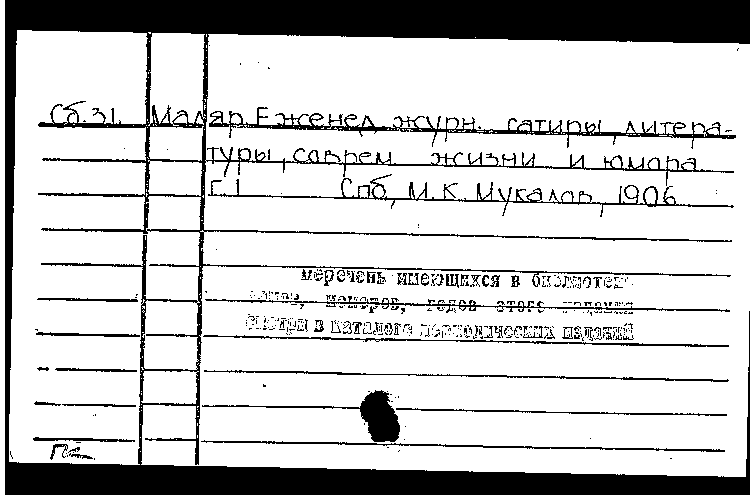 Сб.31. Маляр Еженед журн. сатиры, литера-
туры, соврем жизни и юмора
Г.1 Спб, М.К. Мукалов, 1906
перечень имеющихся в библиотеке
номеров, годов этого издания
смотри в каталоге периодических изданий